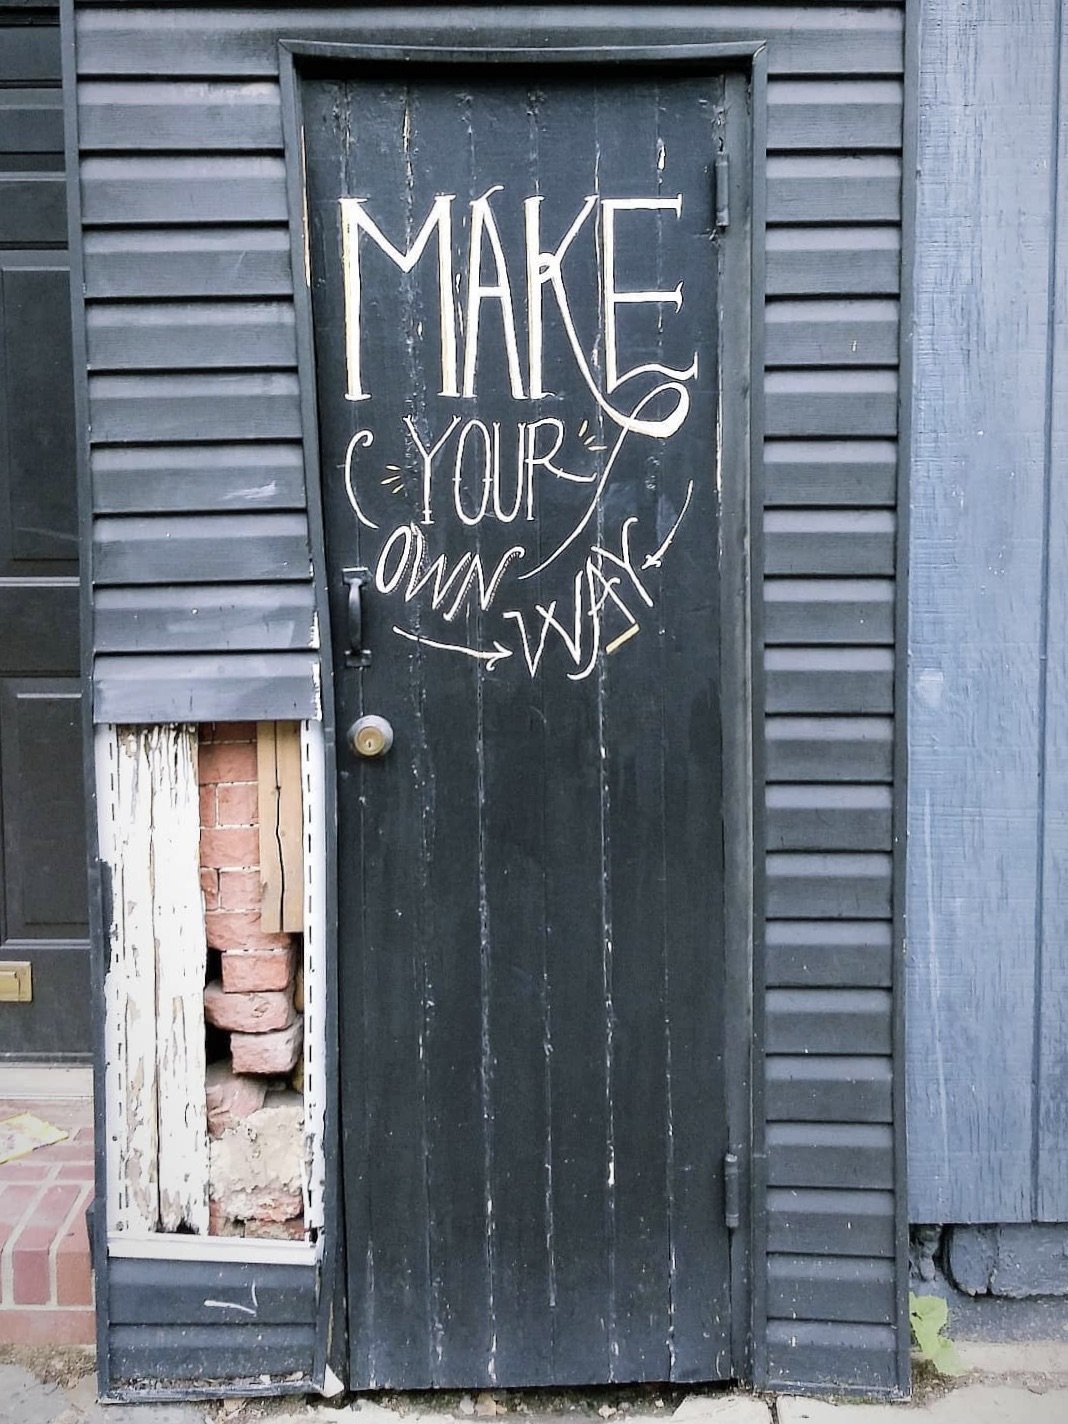 MAKE
YOUR
OWN
WAY